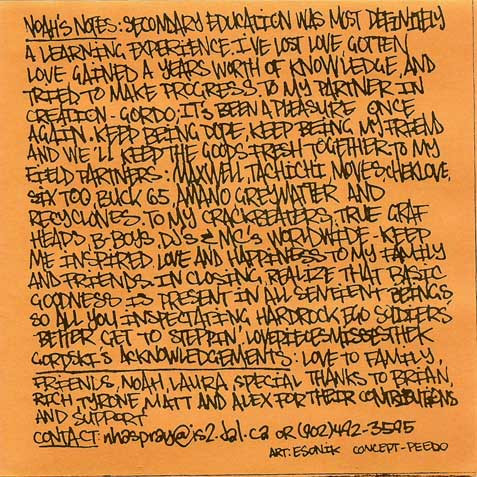 NOAH'S NOTES: SECONDARY EDUCATION WAS MOST DEFINITELY
A LEARNING EXPERIENCE. I'VE LOST LOVE, GOTTEN
LOVE GAINED A YEARS WORTH OF KNOWLEDGE, AND
TRIED TO MAKE PROGRESS TO MY PARTNER IN
CREATION - GORDO, IT'S BEEN A PLEASURE ONCE
AGAIN. KEEP BEING DOPE, KEEP BEING MY FRIEND
AND WE'LL KEEP THE GOODS FRESH TOGETHER TO MY
FIELD PARTNERS: MAXWELL, TACHICHI, MOVES, CHEKLOVE,
SIX TOO, BUCK 65, AMANO, GREYMATTER AND
RECYCLONES. TO MY CRACKBEATERS, TRUE GRAF
HEADS, B-BOYS, DJ'S & MC'S WORLDWIDE - KEEP
ME INSPIRED LOVE AND HAPPINESS TO MY FAMILY
AND FRIENDS. IN CLOSING, REALIZE THAT BASIC
GOODNESS IS PRESENT IN ALL SENTIENT BEINGS,
SO ALL YOU INSPECTATING, HARDROCK, EGO SOLDIERS,
BETTER GET TO STEPPIN'. LOVEPIECEMISSESTHEK
GORDSKI'S ACKNOWLEDGEMENTS: LOVE TO FAMILY,
FRIENDS, NOAH, LAURA, SPECIAL THANKS TO BRIAN,
RICH, TYRONE, MATT AND ALEX FOR THEIR CONTRIBUTIONS
AND SUPPORT
CONTACT: nhaspray@is2.dal.ca OR (902)492-3595
ART: ESONIK CONCEPT-PEEDO